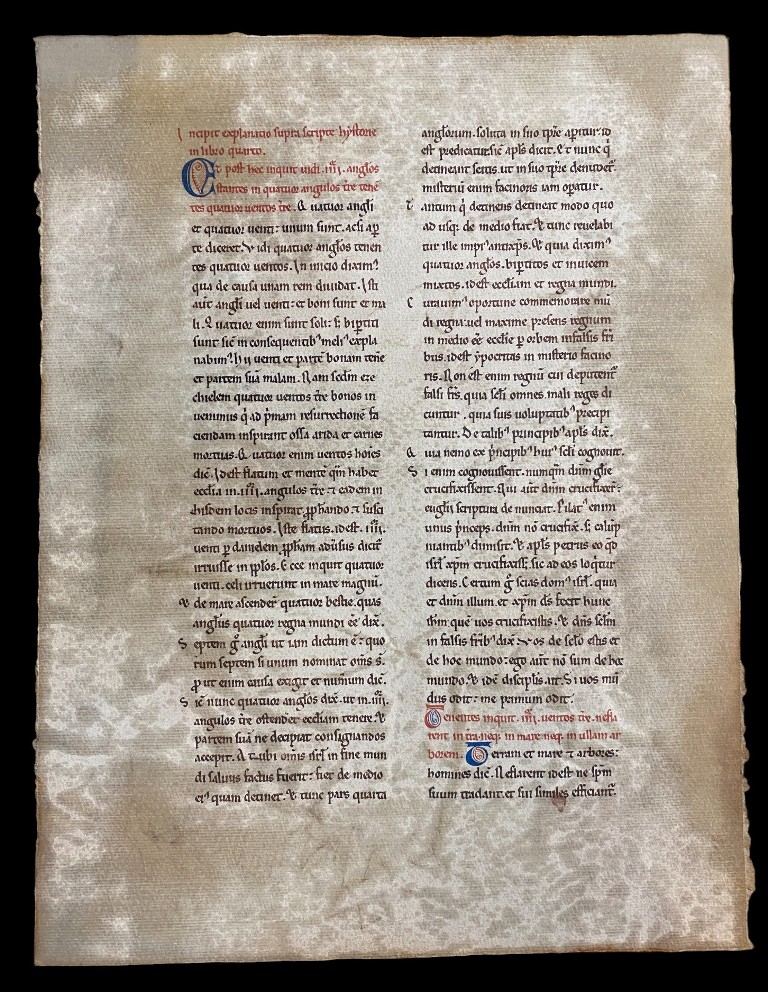 Incipit explanatio supra scripte hystorie
in libro quarto.
Et post hec inquit vidi .iiii. anglos
stantes in quatuor angulos t̄re tene
tes quatuor ventos t̄re. Quatuor angli
et quatuor uenti: unum sunt. acsi ap̄
te diceret. Vidi quatuor anglos tenen
tes quatuor uentos. In inicio diximꝰ
qua de causa unam rem diuidat. Isti
aut̄ angli uel uenti: et boni sunt et ma
li. Quatuor enim sunt soli: s; bip̄titi
sunt sic̄ in consequentibꝰ meliꝰ expla
nabimꝰ. Hii uenti et partē bonam tene
et partem suā malam. Nam sedm eze
chielem quatuor uentos t̄re bonos in
uenimus q̄ ad p̄mam resurrectionē fa
ciendam inspirant ossa arida et carnes
mortuas. Quatuor enim uentos hoīes
dic̄. Idest flatum et mentē
ecclīa in .iiii. angulos t̄re ⁊ eadem in
hisdem locis inspirat. ꝓphando ⁊ susci
tando mortuos. Iste flatus. idest .iiii.
uenti ꝑ danielem ꝓpham adūsus dicit̄
irruisse in pp̄los. Ecce inquit quatuor
uenti celi irruerunt in mare magnū.
⁊ de mare ascender̄ quatuor bestie. quas
anglus quatuor regna mundi eē dix̄.
Septem g̊ angli ut iam dictum ē: quo
rum septem si unum nominat om̄s s̄.
ꝓ ut enim causa exigit et num̄um dic̄.
Sic̄ nunc quatuor anglos dix̄. ut in .iiii.
angulos t̄re ostender̄ eccliam tenere. ⁊
partem suā ne decipiat consignandos
accepit. At ubi om̄is isrl̄ in fine mun
di saluus factus fuerit: fiet de medio
eiꝰ quam detinet. ⁊ tunc pars quarta
anglorum. soluta in suo tp̄re aperitur. id
est predicatur. sic̄ apl̄s dicit. Et nunc q̄
detineat scitis. ut in suo tp̄re denudet̄.
misteriū enim facinoris iam opatur.
Tantum q̄ detinens detineat modo quo
ad usq; de medio fiat. ⁊ tunc reuelabi
tur ille impꝰ antixp̄s. ⁊ quia diximꝰ
quatuor anglos. bip̄titos et inuicem
mixtos. idest eccl̄iam et regna mundi.
Curauimꝰ oportune commemorare mū
di regna. uel maxime presens regnum
in medio eē eccl̄ie ꝑ orbem in falsis fr̄i
bus. idest ypocritas in misterio facino
ris. Non est enim regnū cui deputent̄
falsi fr̄s. quia scl̄i omnes. mali reges di
cuntur. quia suis uoluptatibꝰ precipi
tantur. De talibꝰ principibꝰ apl̄s dix̄.
Quia nemo ex principibꝰ huiꝰ scl̄i cognouit.
Si enim cognouissent. numqm̄ dn̄m gl̄ie
crucifixissent. Qui aut̄ dn̄m crucifixer̄:
euglii scriptura denunciat. Pilatꝰ enim
unus princeps. dn̄m nō crucifix̄. s; calup
niantibꝰ dimisit. ⁊ apl̄s petrus eo qd̄
isrl̄ xp̄m crucifixiss;. sic ad eos loq̄tur
dicens. Certum g̊ scias domꝰ isrl̄. quia
et dn̄m illum et xp̄m dꝰ fecit hunc
ihm̄ quē uos crucifixistis. ⁊ dn̄s
in falsis fr̄ibꝰ dix̄. Vos de scl̄o estis et
de hoc mundo: ego aut̄ nō sum de hoc
mundo. ⁊ idē disciplis. ait. Si uos mū
dus odit: me primum odit.
Tenentes inquit .iiii. uentos t̄re. nefla
rent in t̄ra. neq; in mare neq; in ullam ar
borem. Terram et mare ⁊ arbores:
homines dic̄. Ne flarent idest ne sp̄m
suum tradant. et sui similes efficiant̄.